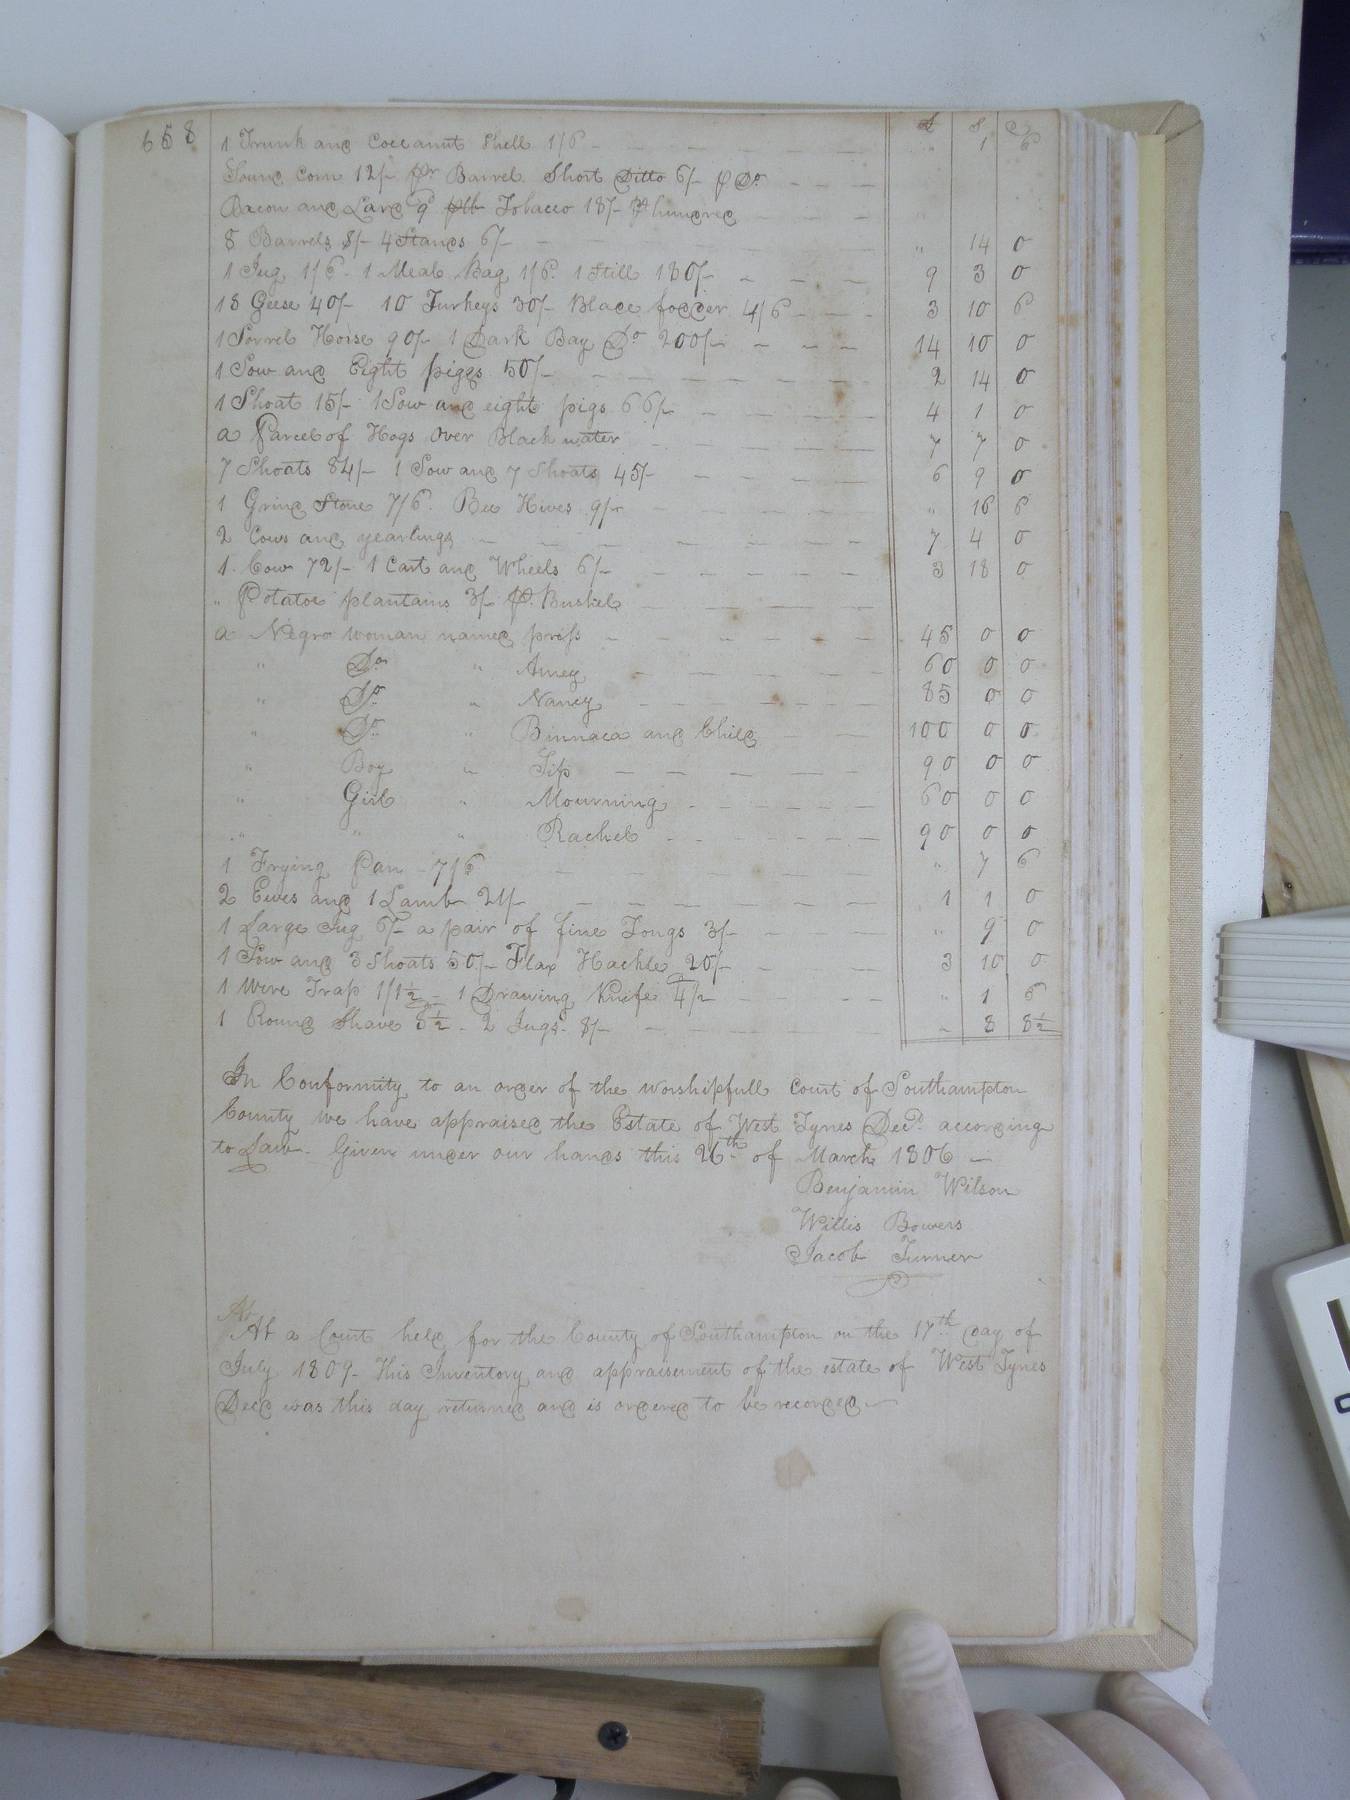 658
£ S D
1 Trunk and Coccanut Shell 1/6 " 1 6
Sound Corn 12/- pr Barrel Short Ditto 6/- p Do
Bacon and Lard 9d plb Tobacco 18/- p hundred
8 Barrels 8/- 4 Stands 6/- " 14 0
1 Jug 1/6 1 Meal Bag 1/6 1 Still 180/- 9 3 0
18 Geese 40/- 10 Turkeys 30/- Blade fodder 4/6 3 10 6
1 Sorrel Horse 90/- 1 Dark Bay Do 200/- 14 10 0
1 Sow and Eight piggs 50/- 2 14 0
1 Shoat 15/- 1 Sow and eight pigs 66/- 4 1 0
a Parcel of Hogs Over Black water 7 7 0
7 Shoats 84/- 1 Sow and 7 Shoats 45/- 6 9 0
1 Grind Stone 7/6 Bee Hives 9/- " 16 6
2 Cows and yearlings 7 4 0
1 Cow 72/- 1 Cart and Wheels 6/- 3 18 0
" Potatoe plantains 3/- p. Bushel
a Negro woman named priss 45 0 0
" Do " Amey 60 0 0
" Do " Nancy 85 0 0
" Do " Binnaca and Child 100 0 0
" Boy " 90 0 0
" Girl " Mourning 60 0 0
" " " Rachel 90 0 0
1 Frying Pan 7/6 " 7 6
2 Ewes and 1 Lamb 21/- 1 1 0
1 Large Jug 6/- a pair of fine Tongs 3/- " 9 0
1 Sow and 3 Shoats 50/- Flax Hackle 20/- 3 10 0
1 Wire Trap 1/1½ 1 Drawing Knife 4/2 " 1
1 Round Shave 8½ 2 Jugs 8/- " 8 8½
In Conformity to an order of the worshipfull Court of Southampton
County we have appraised the Estate of West Tynes Decd. according
to Law. Given under our hands this 26th of March 1806
Benjamin Wilson
Willis Bowers
Jacob Turner
At
At a Court held for the County of Southampton on the 17th day of
July 1809 This Inventory and appraisement of the estate of West Tynes
Decd was this day returned and is ordered to be recorded